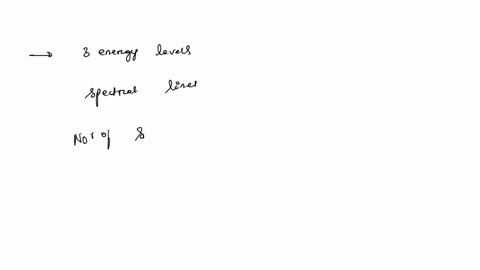 → 3 energy levels
spectral lines
No. of S